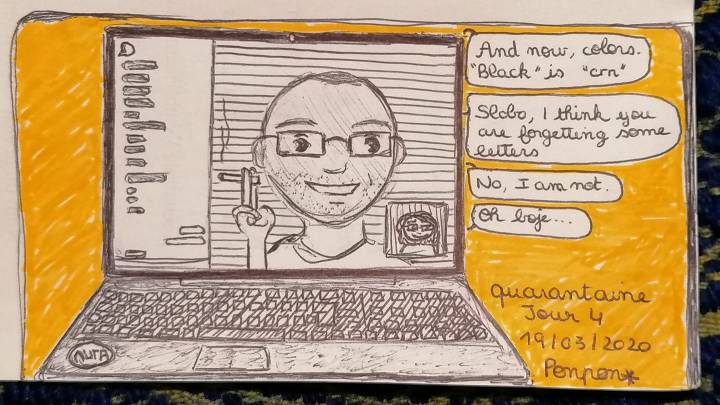 And now, colors.
"Black" is "crn"
Slobo, I think you
are forgetting some
letters
No, I am not.
Oh boje...
quarantaine
Jour 4
19/03/2020
Penpen*
NuTA